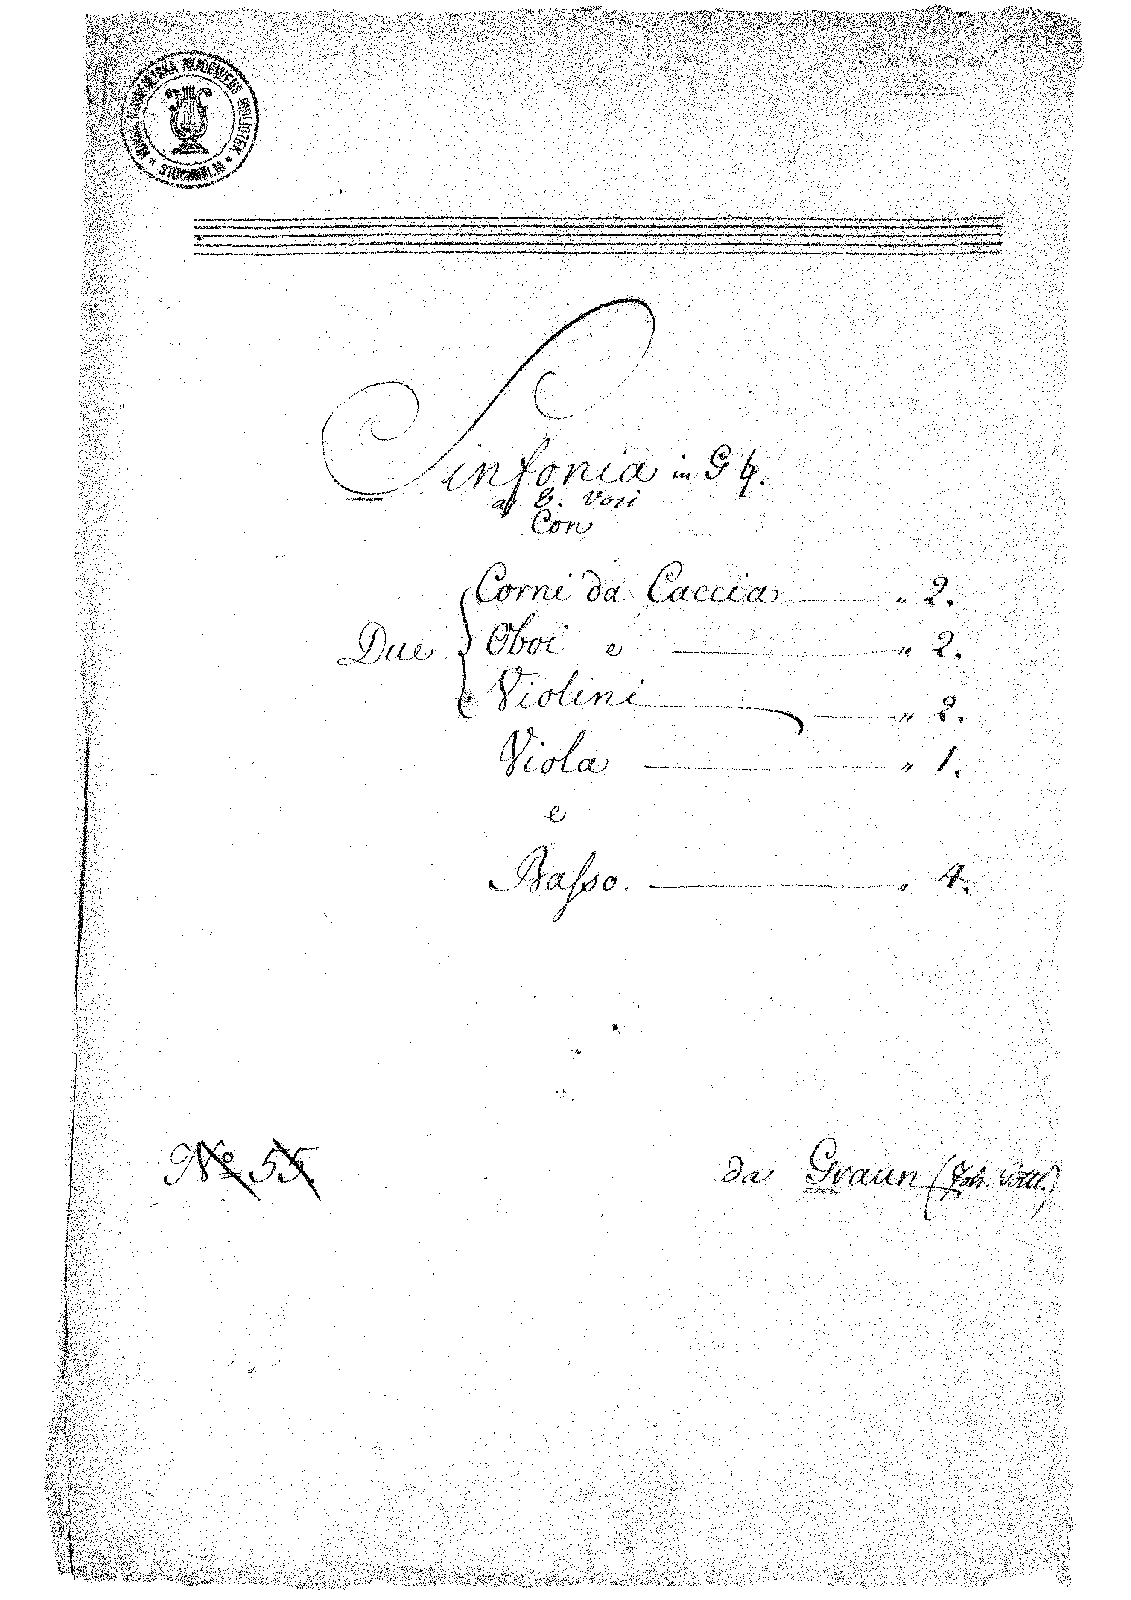 KONGL. MUSIKALISKA AKADEMIENS BIBLIOTEK
Sinfonia in G ♮.
a 8. Voci
Con
Corni da Caccia „ 2.
Due Oboi e „ 2.
Violini „ 2.
Viola „ 1.
e
Basso. „ 4.
No. 55.
da Graun (Joh. Gottl.)